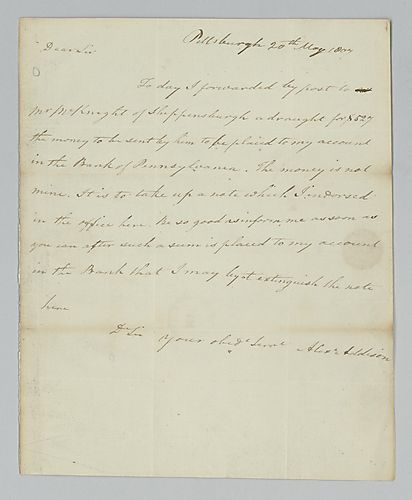 Pittsburgh 20th May 1807
Dear Sir
To day I forwarded by post to
Mr McKnight of Shippensburgh a draught for $527
the money to be sent by him to be placed to my account
in the Bank of Pennsylvania. The money is not
mine. It is to take up a note which I endorsed
in the office here. Be so good as inform me as soon as
you can after such a sum is placed to my account
in the Bank that I may by it extinguish the note
here
Dr Sir your obedt Servt Alexr Addison